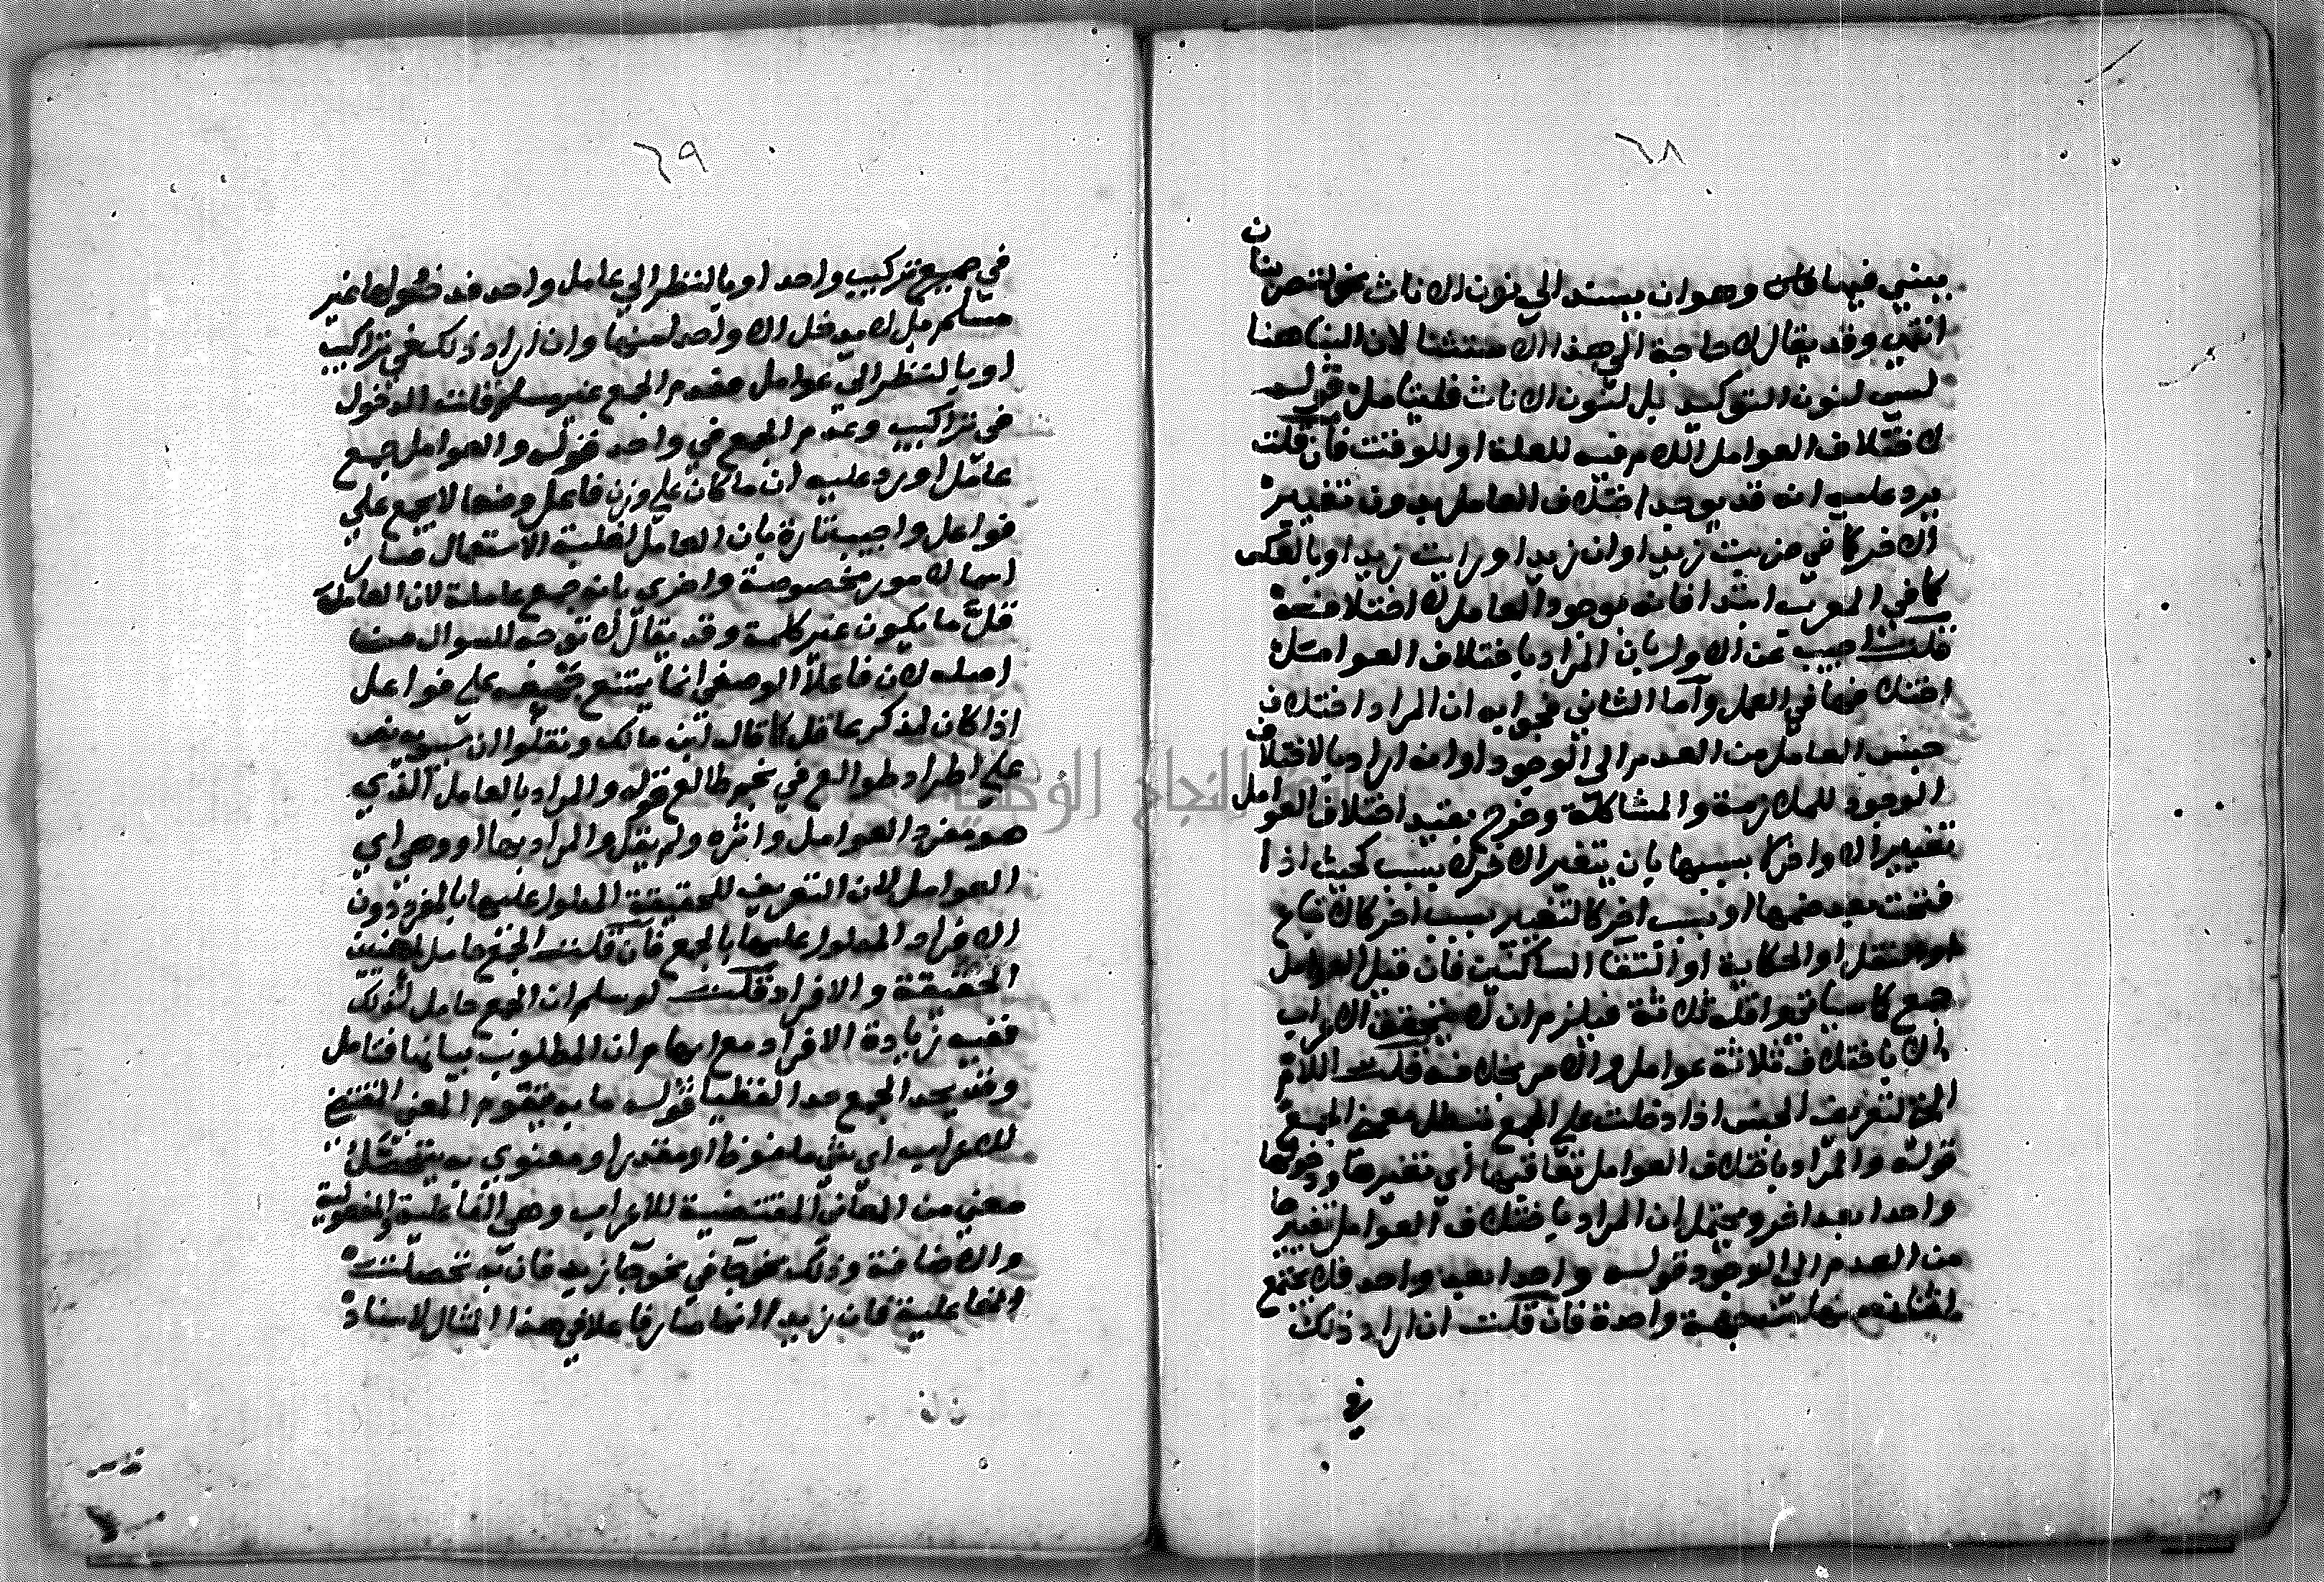 ٦٨
يبني فيها وهو ان يسند الي نون الاناث نحو لتضربنان
انتهي وقد يقال لا حاجة الي هذا الاستثنا لان البنا هنا
ليس لنون التوكيد بل لنون الاناث فليتامل قوله
لاختلاف العوامل اللام فيه للعلة او للوقت فان قلت
يرد عليه انه قد يوجد اختلاف العامل بدون تغيير
الاخر كما في ضربت زيدا وان زيدا ورايت زيدا وبالعكس
كما في المعرب ابتدا فانه يوجد العامل لا اختلافه
قلت اجيب عن الاول بان المراد باختلاف العوامل
اختلافها في العمل وأما الثاني فجوابه ان المراد اختلاف
جنس العامل من العدم الى الوجود او انه اراد بالاختلاف
الوجود للملازمة والمشاكلة وخرج بقيد اختلاف العوامل
تغيير الاواخر لا بسببها بان يتغير الاخر لا بسبب كحيث اذا
فتحت بعد ضمها او بسبب اخر كالتغيير بسبب اخر كالاتباع
او النقل او الحكاية او التقا الساكنين فان قيل العوامل
جمع كما سياتي واقله ثلاثة فيلزم ان لا يتحقق الاعراب
الا باختلاف ثلاثة عوامل والامر بخلافه قلت اللام
التي لتعريف الجنس اذا دخلت علي الجمع تبطل معني الجمع
قوله والمراد باختلاف العوامل تعاقبها أي تغيرها ودخولها
واحدا بعد اخر ويحتمل ان المراد باختلاف العوامل تغيرها
من العدم الي الوجود قوله واحدا بعد واحد فلا يجتمع
اثنان منها من جهة واحدة فان قلت ان اراد ذلك
في
٦٩
في جميع تركيب واحد او بالنظر الي عامل واحد فدخولها غير
مسلم بل لا يدخل الا واحد منها وان اراد ذلك في تراكيب
او بالنظر الى عوامل فعدم الجمع غير مسلم قلت الدخول
في تراكيب وعدم الجمع في واحد قوله والعوامل جمع
عامل اورد عليه ان ما كان علي وزن فاعل وصفا لا يجمع علي
فواعل واجيب تارة بان العامل لغلبة الاستعمال صار
اسما لامور مخصوصة واخري بانه جمع عاملة لان العامل
قل ما يكون غير كلمة وقد يقال لا توجه للسوال من
اصله لان فاعلا الوصفي انما يمتنع جمعه علي فواعل
اذا كان لمذكر عاقل كما قال ابن مالك ونقلوا ان سيبويه نص
على اطراد طوالع في نحو طالع قوله والمراد بالعامل الذي
هو مفرد العوامل واثره ولم يقل والمراد بها او وهي اي
العوامل لان التعريف للحقيقة المدلول عليها بالمفرد دون
الافراد المدلول عليها بالجمع فان قلت الجمع حامل لهذين
الحقيقة والافراد قلت لو سلم ان الجمع حامل لذلك
ففيه زيادة الافراد مع ايهام ان المطلوب بيانها فتامل
وقد يحد الجمع حدا لفظيا قوله ما به يتقوم المعني المقتضي
للاعراب اي شي ملفوظ او مقدر او معنوي به يتحصل
معني من المعاني المقتضية للاعراب وهي الفاعلية والمفعولية
والاضافة وذلك نحو جا في نحو جا زيد فان به تحصلت
الفاعلية فان زيد انما صار فاعلا في هذا المثال لاسناد